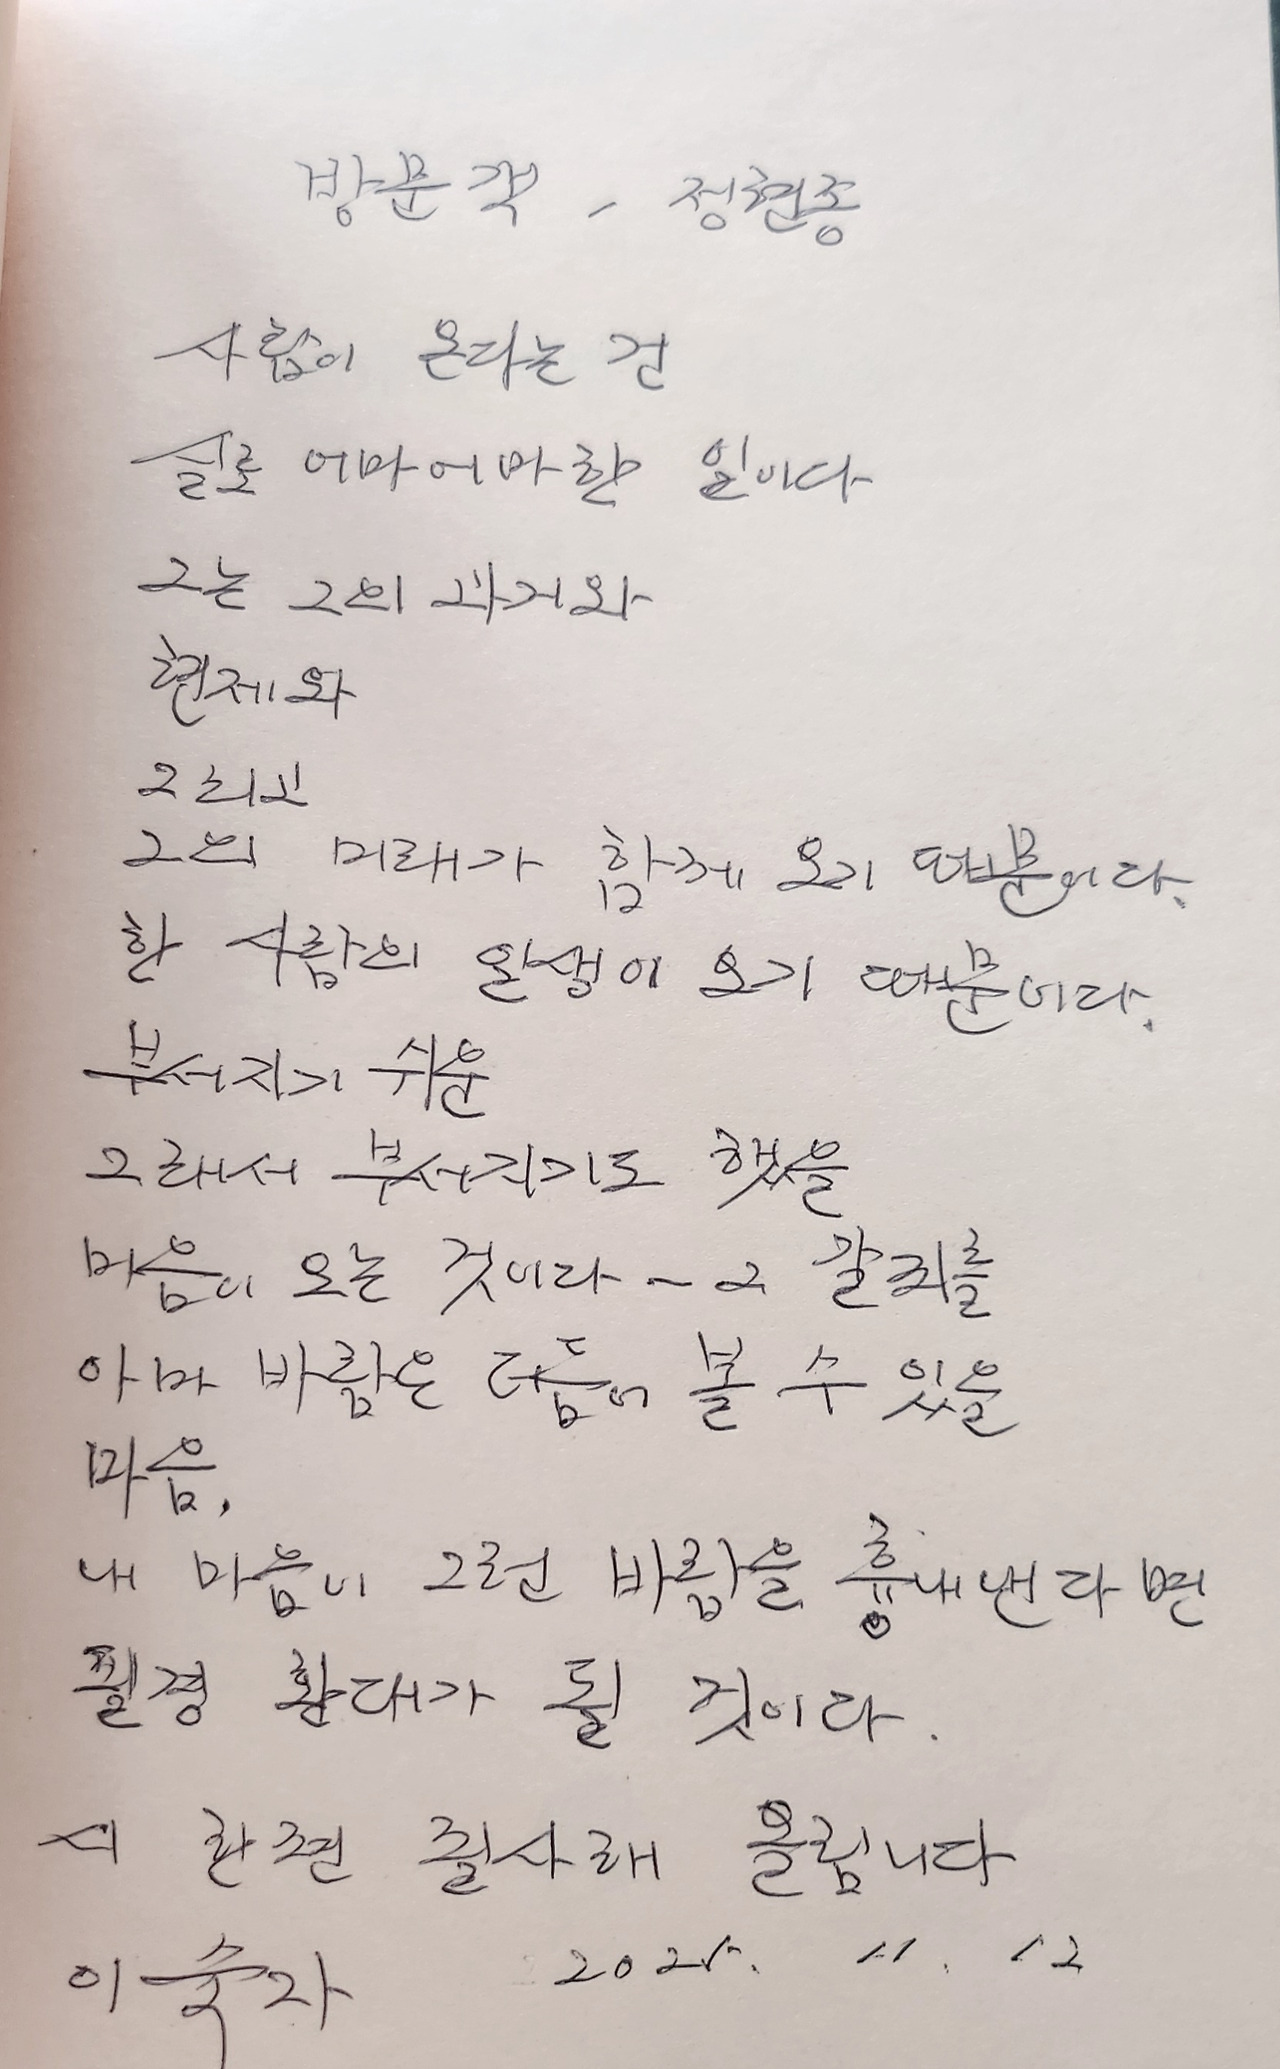 방문객 - 정현종
사람이 온다는 건
실로 어마어마한 일이다
그는 그의 과거와
현제와
그리고
그의 미래가 함께 오기 때문이다.
한 사람의 일생이 오기 때문이다.
부서지기 쉬운
그래서 부서지기도 했을
마음이 오는 것이다 ~ 그 갈피를
아마 바람은 더듬어 볼 수 있을
마음,
내 마음이 그런 바람을 흉내낸다면
필경 환대가 될 것이다.
시 한편 필사해 올립니다
이숙자 2025. 11. 12